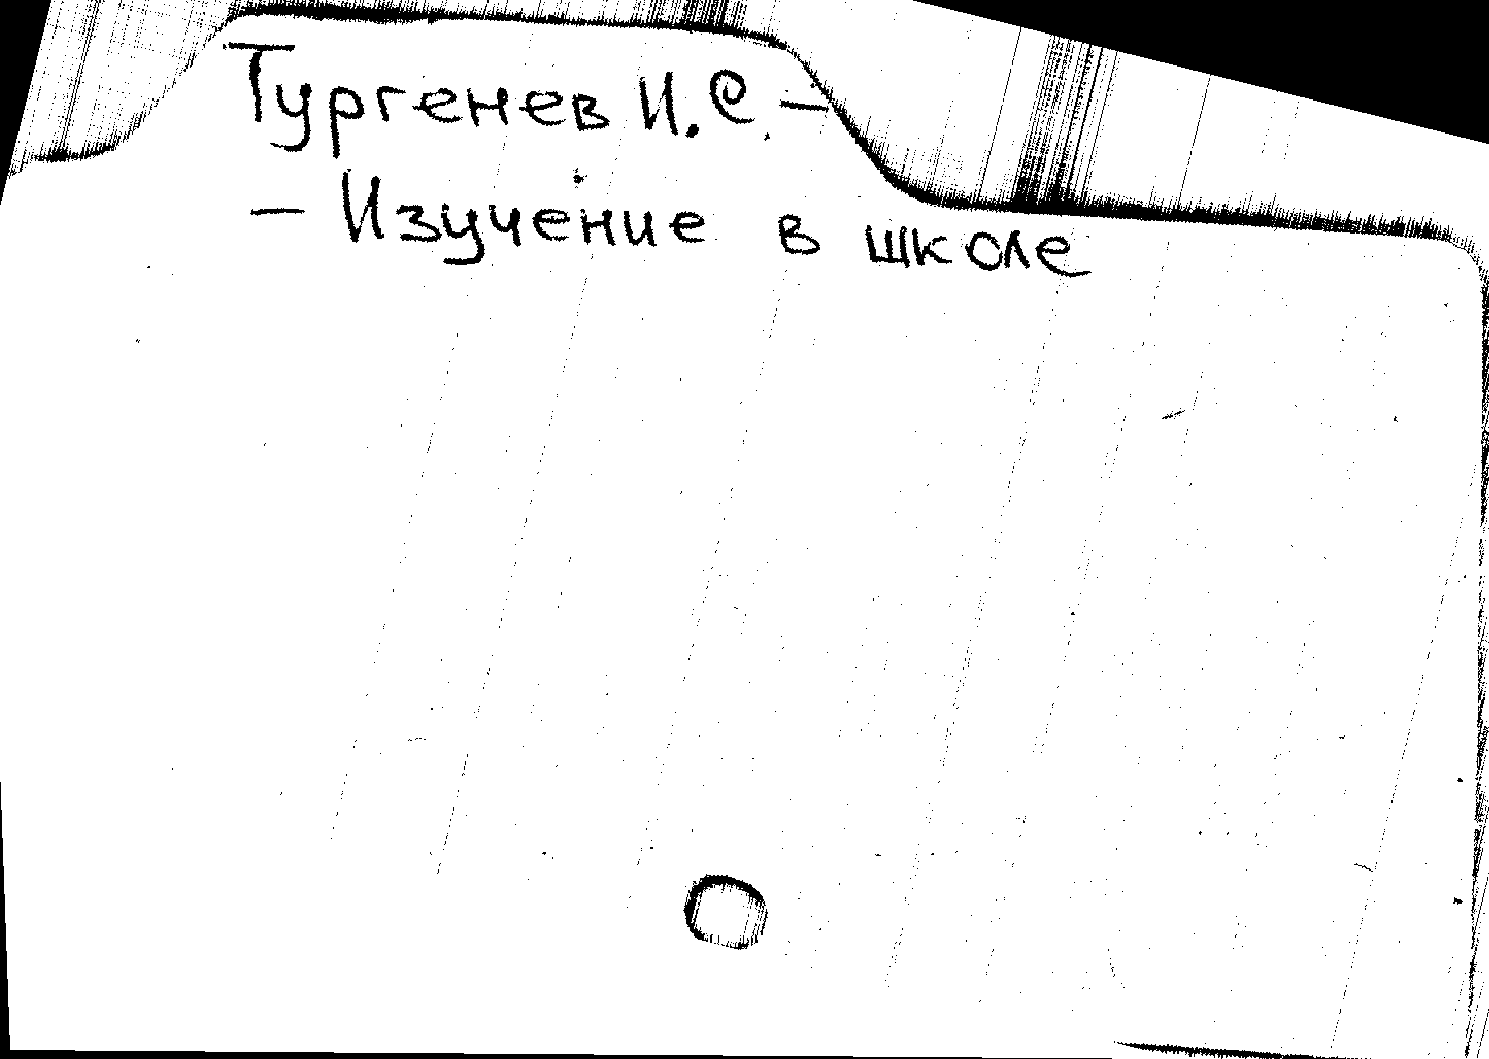 Тургенев И.С. –
– Изучение в школе